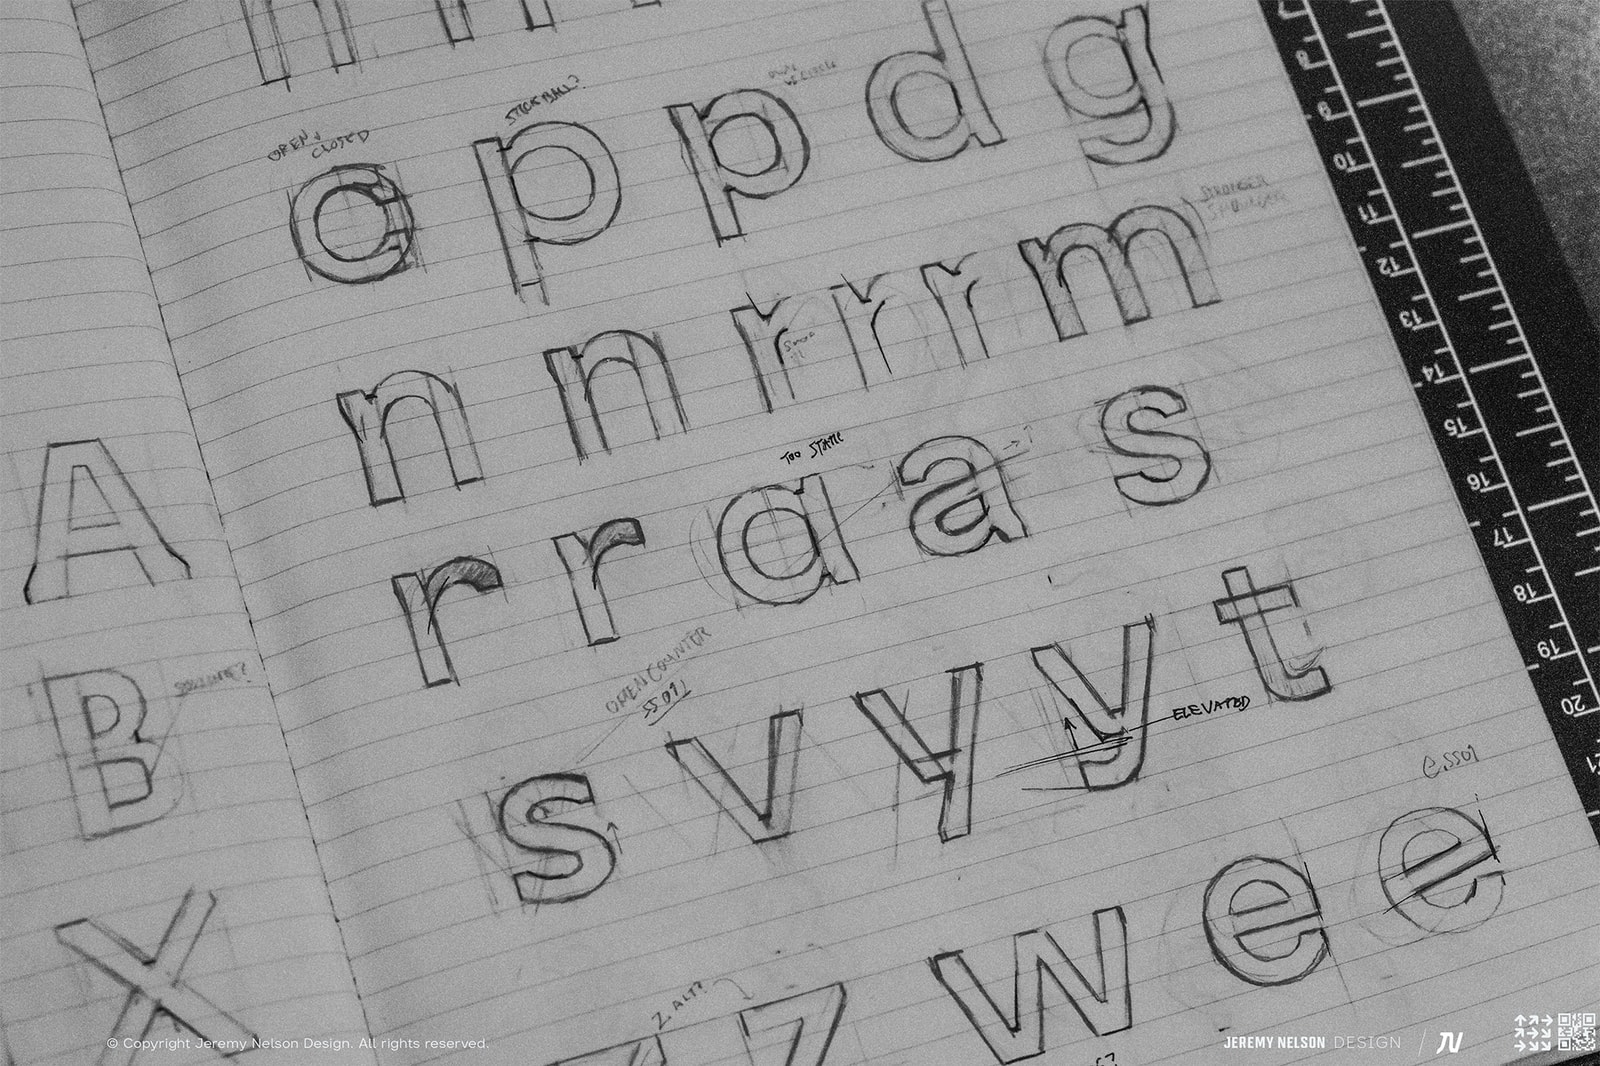 OPEN &
CLOSED
c
STICK BALL?
p
p
d
g
STRONGER
SHOULDER
n
n
r
r
r
m
TOO STATIC
r
r
a
a
s
OPEN COUNTER
TO SS
s
v
y
y
ELEVATED
t
e.ss01
Z. ALT?
z
w
e
e
A
B
X
8
9
10
11
12
13
14
15
16
17
18
19
20
21
© Copyright Jeremy Nelson Design. All rights reserved.
JEREMY NELSON DESIGN